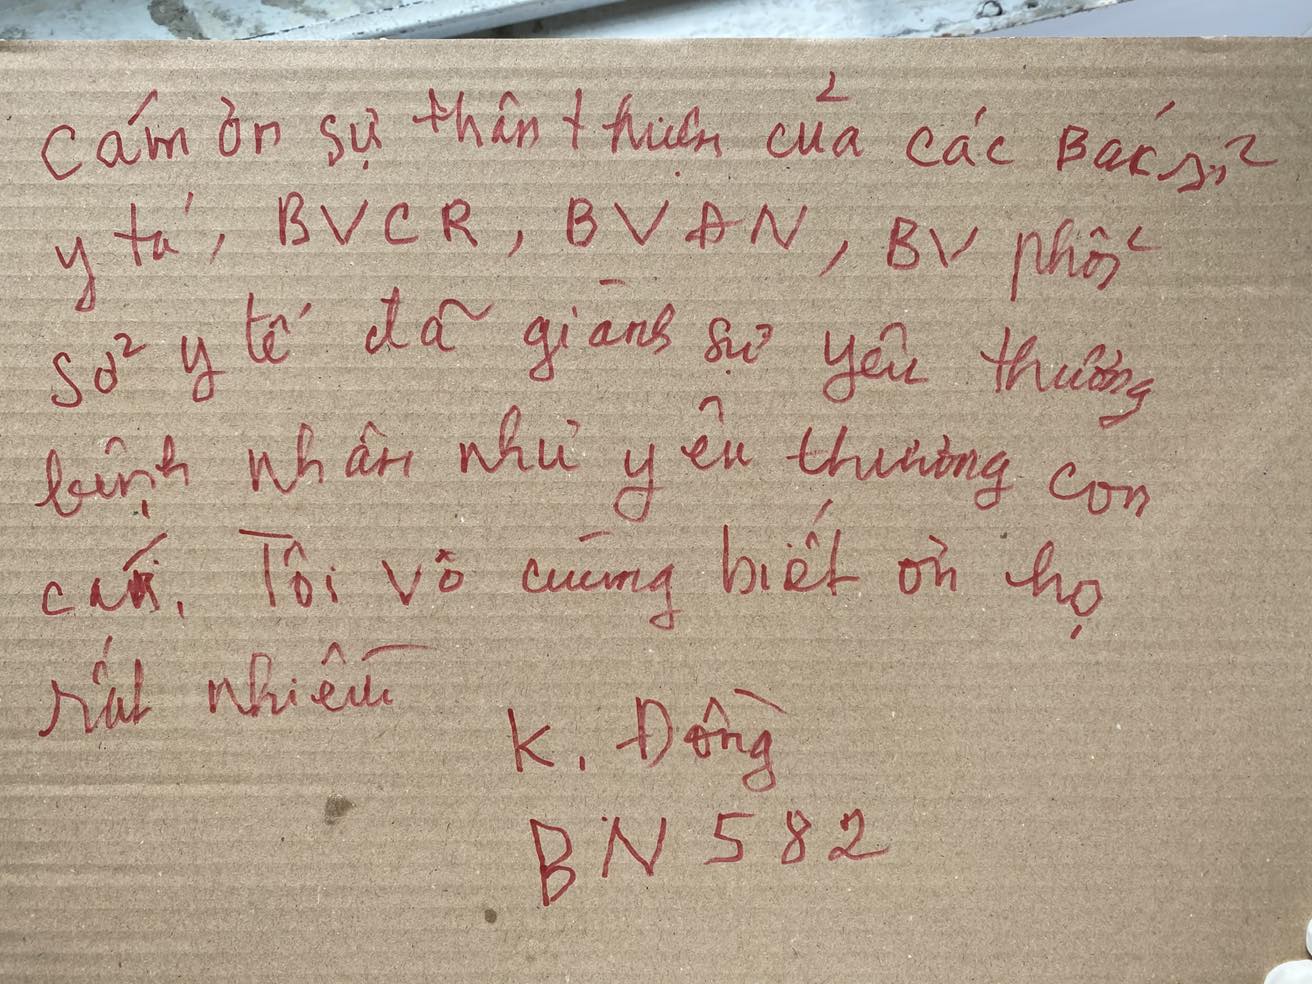 Cám ơn sự thân thiện của các Bác sỉ
y tá, BVCR, BVAN, BV phổi
Sở y tế đã giành sự yêu thương
bệnh nhân như yêu thương con
cái. Tôi vô cùng biết ơn họ
rất nhiều
K. Đồng
BN 582